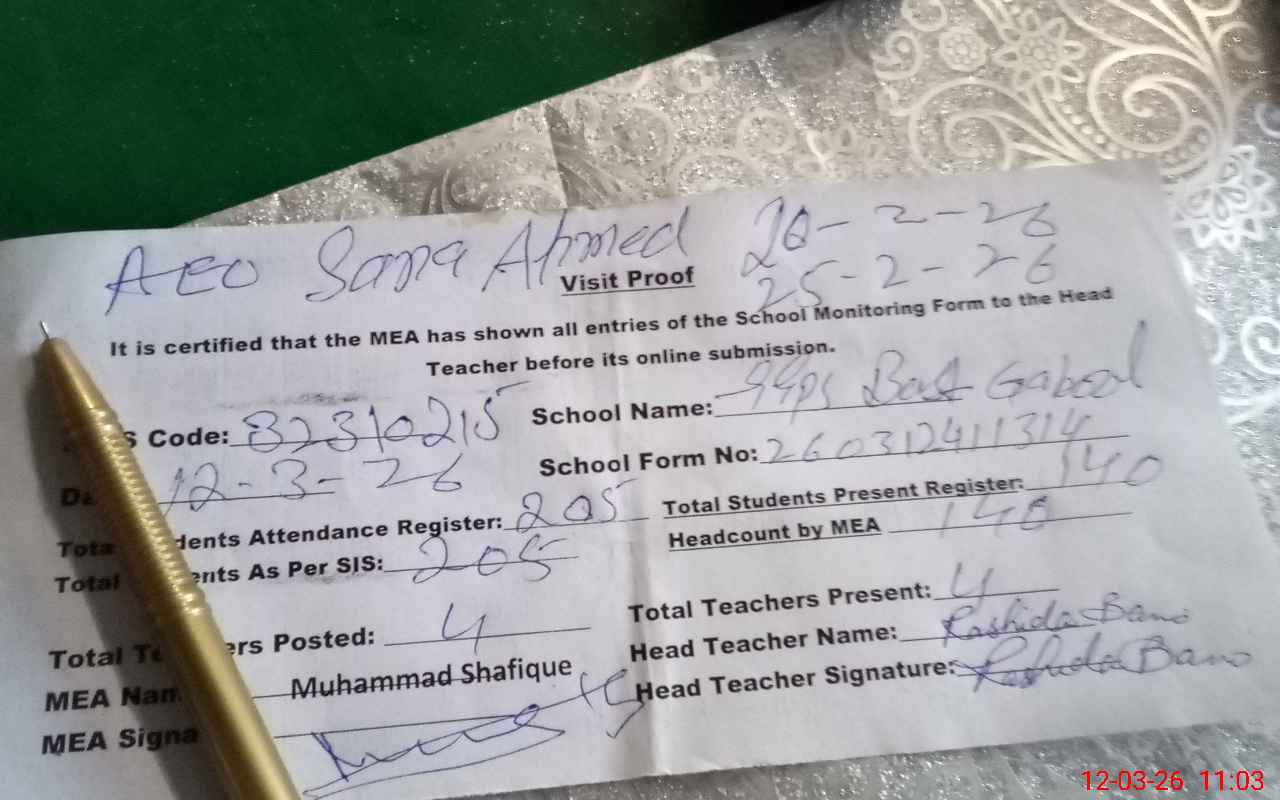 AEO Sana Ahmed 20-2-26
Visit Proof 25-2-26
It is certified that the MEA has shown all entries of the School Monitoring Form to the Head
Teacher before its online submission.
S Code: 32310215 School Name: GGPS Bast Gabool
12-3-26 School Form No: 260312411314
dents Attendance Register: 205 Total Students Present Register: 140
Total ents As Per SIS: 205 Headcount by MEA 140
Total Te ers Posted: 4 Total Teachers Present: 4
MEA Nam Muhammad Shafique Head Teacher Name: Rashida Bano
MEA Signa Head Teacher Signature: Rashida Bano
12-03-26 11:03